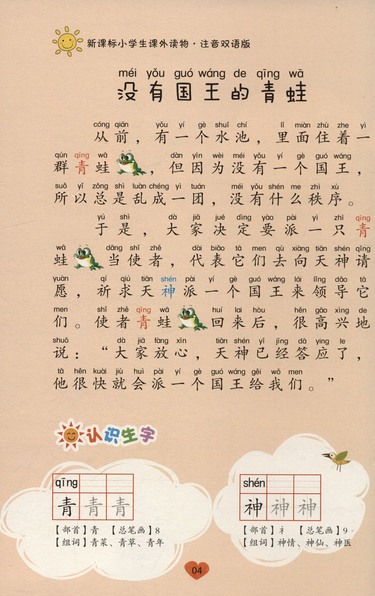 新课标小学生课外读物·注音双语版
méi yǒu guó wáng de qīng wā
没有国王的青蛙
cóng qián yǒu yí gè shuǐ chí lǐ miàn zhù zhe yì
从前，有一个水池，里面住着一
qún qīng wā dàn yīn wèi méi yǒu yí gè guó wáng
群青蛙，但因为没有一个国王，
suǒ yǐ zǒng shì luàn chéng yì tuán méi yǒu shén me zhì xù
所以总是乱成一团，没有什么秩序。
yú shì dà jiā jué dìng yào pài yì zhī qīng
于是，大家决定要派一只青
wā dāng shǐ zhě dài biǎo tā men qù xiàng tiān shén qǐng
蛙当使者，代表它们去向天神请
yuàn qí qiú tiān shén pài yí gè guó wáng lái lǐng dǎo tā
愿，祈求天神派一个国王来领导它
men shǐ zhě qīng wā huí lai hòu hěn gāo xìng de
们。使者青蛙回来后，很高兴地
shuō dà jiā fàng xīn tiān shén yǐ jīng dā ying le
说：“大家放心，天神已经答应了，
tā hěn kuài jiù huì pài yí gè guó wáng gěi wǒ men
他很快就会派一个国王给我们。”
认识生字
qīng
青 青 青
【部首】青 【总笔画】8
【组词】青菜、青草、青年
shén
神 神 神
【部首】礻 【总笔画】9
【组词】神情、神仙、神医
04